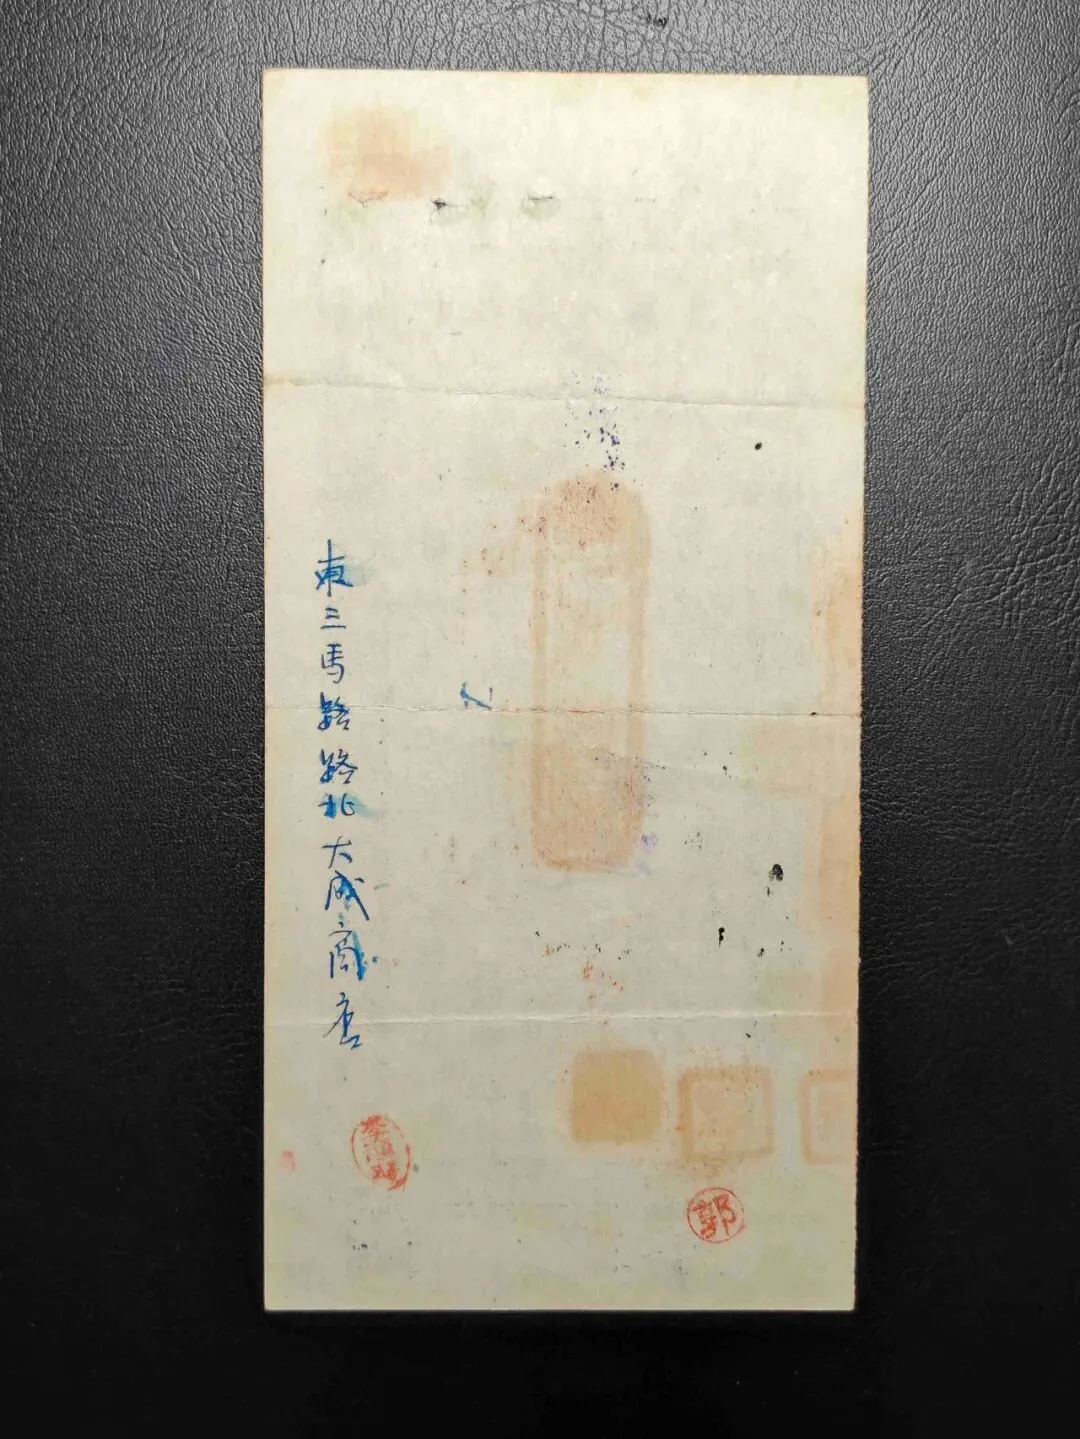 東三馬路路北大成商店
郭